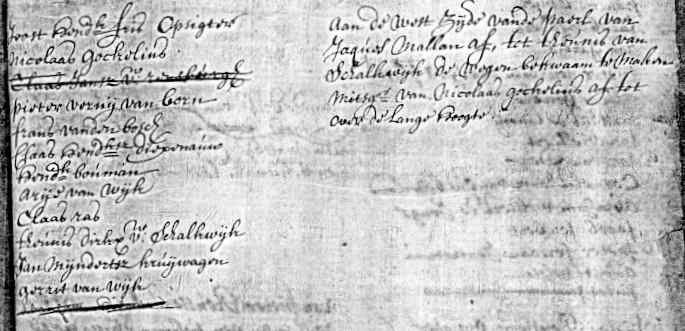 Joost Hendk. Smit Opsigter
Nicolaas Gockelius
Claas Jansz vn. rensburgh
Pieter vernij van bern
frans vanden bosch
Claas Hendkse diepenauw
Hendk. bouman
Arije van Wijk
Claas ras
theunis dirksz vn. Schalkwijk
Jan Mijndertsz kruijwagen
gerrit van Wijk
Aan de west Zijde vande paerl van
Jaques Mallan af, tot theunis van
Schalkwijk de wegen bekwaam te maken
Mitsgs. van Nicolaas gockelius af tot
over de Lange Hoogte.